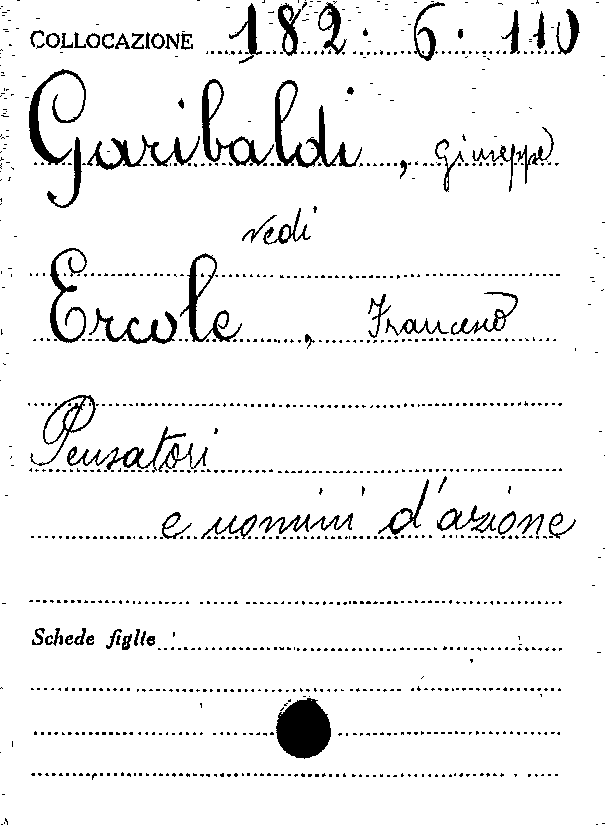 COLLOCAZIONE 182. 6. 110
Garibaldi, Giuseppe
vedi
Ercole, Francesco
Pensatori
e uomini d'azione
Schede figlie